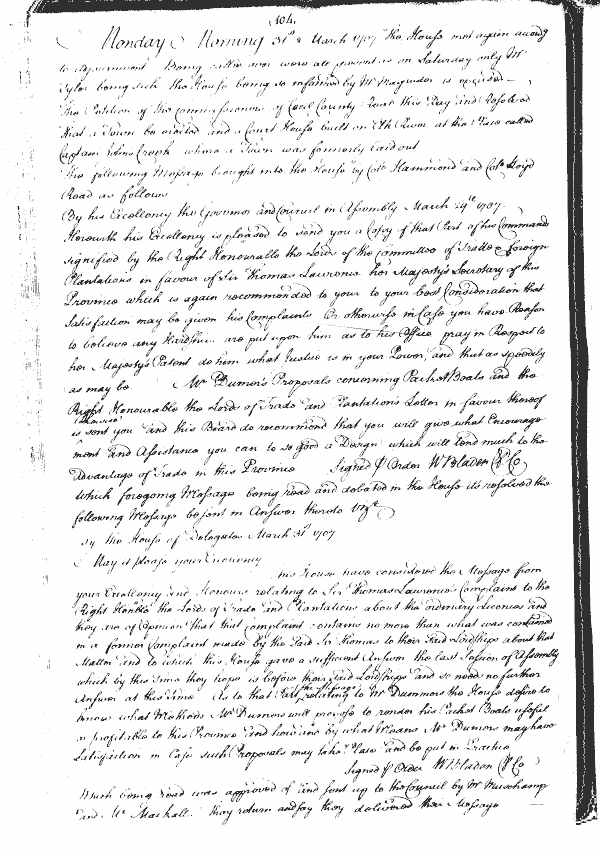 (104)
Monday Morning 31st March 1707 The House met again according
to adjournment Being called over were all present as on Saturday only Mr
Tyler being sick the House being so informed by Mr Magruder is excused
The Petition of the Commissioners of Cecil County Read this Day and Resolved
that a Town be erected and a Court House built on Elk River at the Place called
Captain Johns Creek where a Town was formerly laid out
The following Message brought into the House by Collo Hammond and Collo Lloyd
Read as follows
By his Excellency the Govenor and Councill in Assembly March 29th 1707.
Herewith his Excellency is pleased to send you a Copy of that Part of his Commands
signified by the Right Honourable the Lords of the Committee of Trade & foreign
Plantations in favour of Sir Thomas Laurence her Majesty's Secretary of this
Province which is again recommended to your to your best Consideration that
Satisfaction may be given his Complaints Or otherwise in Case you have Reason
to believe any Hardships are put upon him as to his Office pray in Respect to
her Majesty's Patent do him what Justice is in your Power, and that as speedily
as may be. Mr Dumer's Proposals concerning Packet Boats and the
Right Honourable the Lords of Trade and Plantations Letter in favour thereof
likewise
is sent you and this Board do recommend that you will give what Encourage
ment and Assistance you can to so good a Design which will tend much to the
advantage of Trade in this Province Signed p Order W Bladen Cl Co
Which foregoing Message being read and debated in the House its resolved the
following Message be sent in Answer thereto Vizt
By the House of Delegates March 31st 1707
May it please your Excellency
This House have considered the Message from
your Excellency and Honours relating to Sir Thomas Laurence's Complaint to the
Right Honble the Lords of Trade and Plantations about the Ordinary Licences and
they are of Opinion that that Complaint contains no more than what was contained
in a former Complaint made by the said Sir Thomas to their said Lordships about that
Matter and to which this House gave a sufficient Answer the last Session of Assembly
which by this time they hope is before their said Lordships and so needs no further
Answer at this time As to that Part of the Message relating to Mr Dummers the House desire to
know what Methods Mr Dumers will propose to render his Packet Boats usefull
& profitable to this Province and how and by what Means Mr Dumers may have
Satisfaction in Case such Proposals may take Place and be put in Practice
Signed p Order W Bladen Cl Co
Which being read was approved of and sent up to the Councill by Mr Muschamp
and Mr Mackall. They return and say they delivered their Message